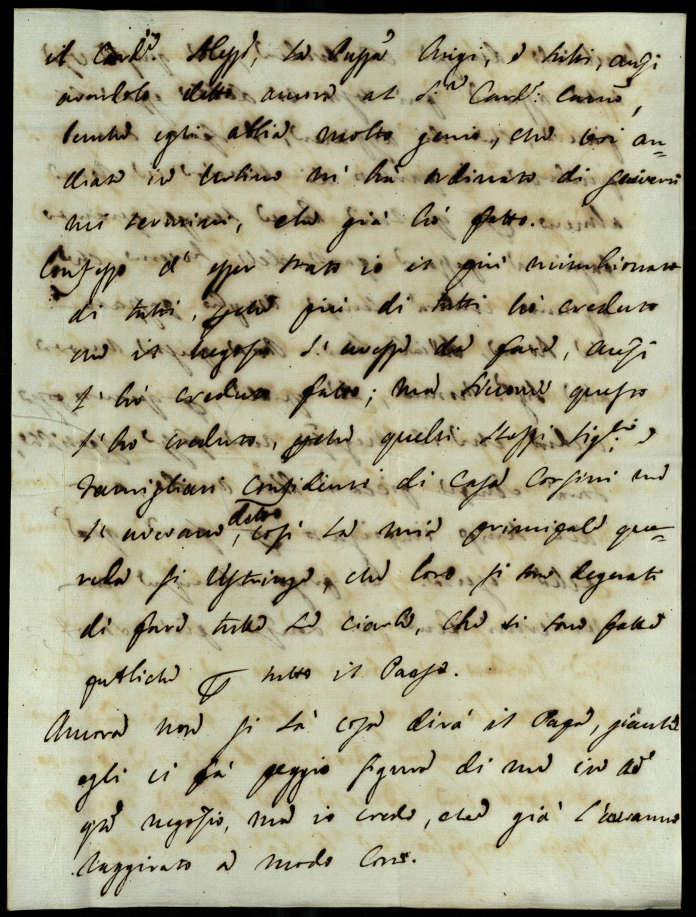 il Card.e Aless.o, la Casa Chigi, e tutti, anzi
avendolo detto ancora al S.r Card.e
benche egli abbia molto genio, che così an=
diate in Urbino m'ha ordinato di scriverci
ne' termini, che già hò fatto.
Confesso d'esser stato io il più minchionato
di tutti, perche più di tutti hò creduto
che il negozio s'avesse da fare, anzi
l'hò creduto fatto; ma siccome questo
l'hò creduto, perche quelli stessi Sig.ri e
famigliari confidenti di Casa Corsini me
l'avevano detto, così la mia principale que=
rela si ristringe, che loro si sono degnati
di fare tutte le ciarle, che si sono fatte
publiche per tutto il Paese.
Ancora non si sà cosa dirà il Papa, giacche
egli ci fà peggio figura di me in do
q.to negozio, ma io credo, che già l'averanno
raggirato a modo loro.